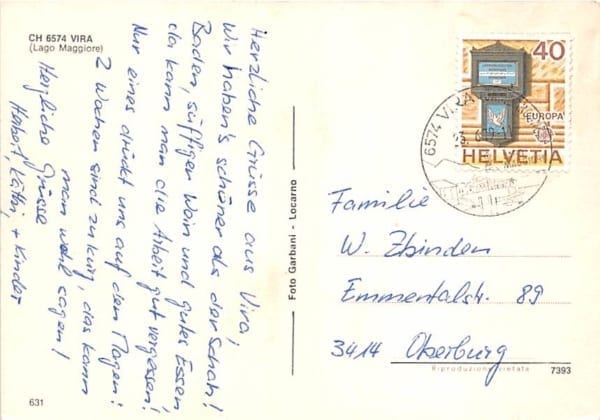 CH 6574 VIRA
(Lago Maggiore)
Herzliche Grüsse aus Vira!
Wir haben's schöner als der Schah!
Baden, süffigen Wein und gutes Essen
da kann man die Arbeit gut vergessen!
Nur eines drückt uns auf den Magen:
2 Wochen sind zu kurz, das kann
man wohl sagen!
Herzliche Grüsse
Käthi, + Kinder
Foto Garbani - Locarno
631
40
EUROPA
HELVETIA
6574 VIRA
Familie
W. Zbinden
Emmentalstr. 89
3414 Oberburg
Riproduzione vietata
7393